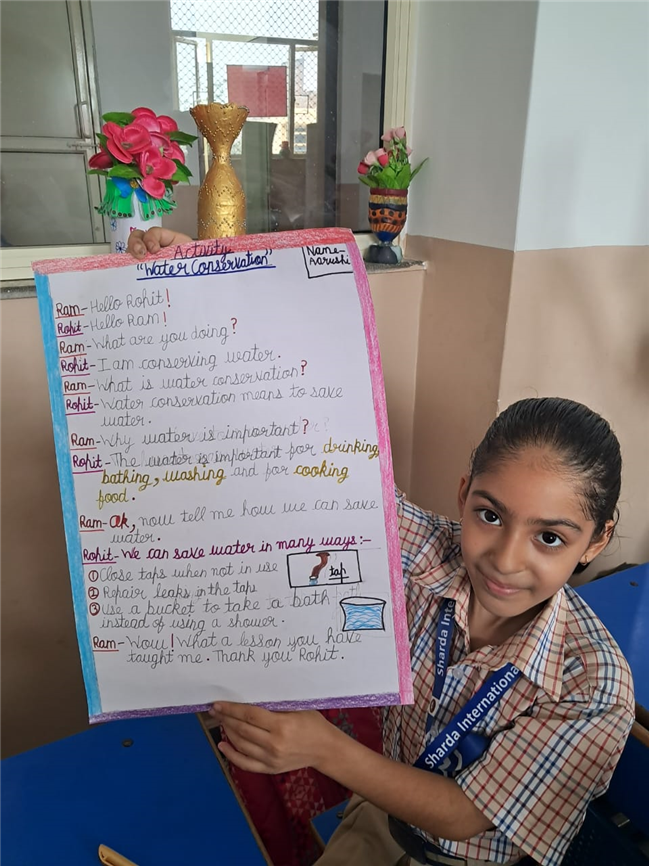 Activity
"Water Conservation"
Name-
Aarushi
Ram- Hello Rohit!
Rohit- Hello Ram!
Ram- What are you doing?
Rohit- I am conserving water.
Ram- What is water conservation?
Rohit- Water conservation means to save
water.
Ram- Why water is important?
Rohit- The water is important for drinking,
bathing, washing and for cooking
food.
Ram- Ok, now tell me how we can save
water.
Rohit- We can save water in many ways:-
① Close taps when not in use
② Repair leaks in the tap
③ Use a bucket to take a bath
instead of using a shower.
tap
Ram- Wow! What a lesson you have
taught me. Thank you Rohit.
Sharda Inte
Sharda International